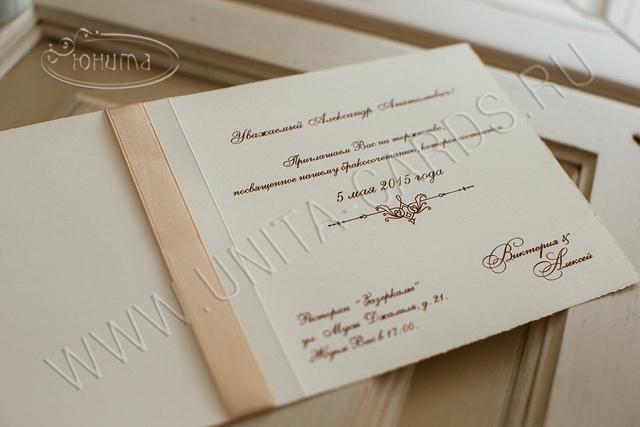 Юнита
Уважаемый Александр Анатольевич!
Приглашаем Вас на торжество,
посвященное нашему бракосочетанию, которое состоится
5 мая 2015 года
Виктория &
Алексей
Ресторан "Зазеркалье"
ул. Мусы Джалиля, д. 21.
Ждем Вас в 17:00.
WWW.UNITA-CARDS.RU